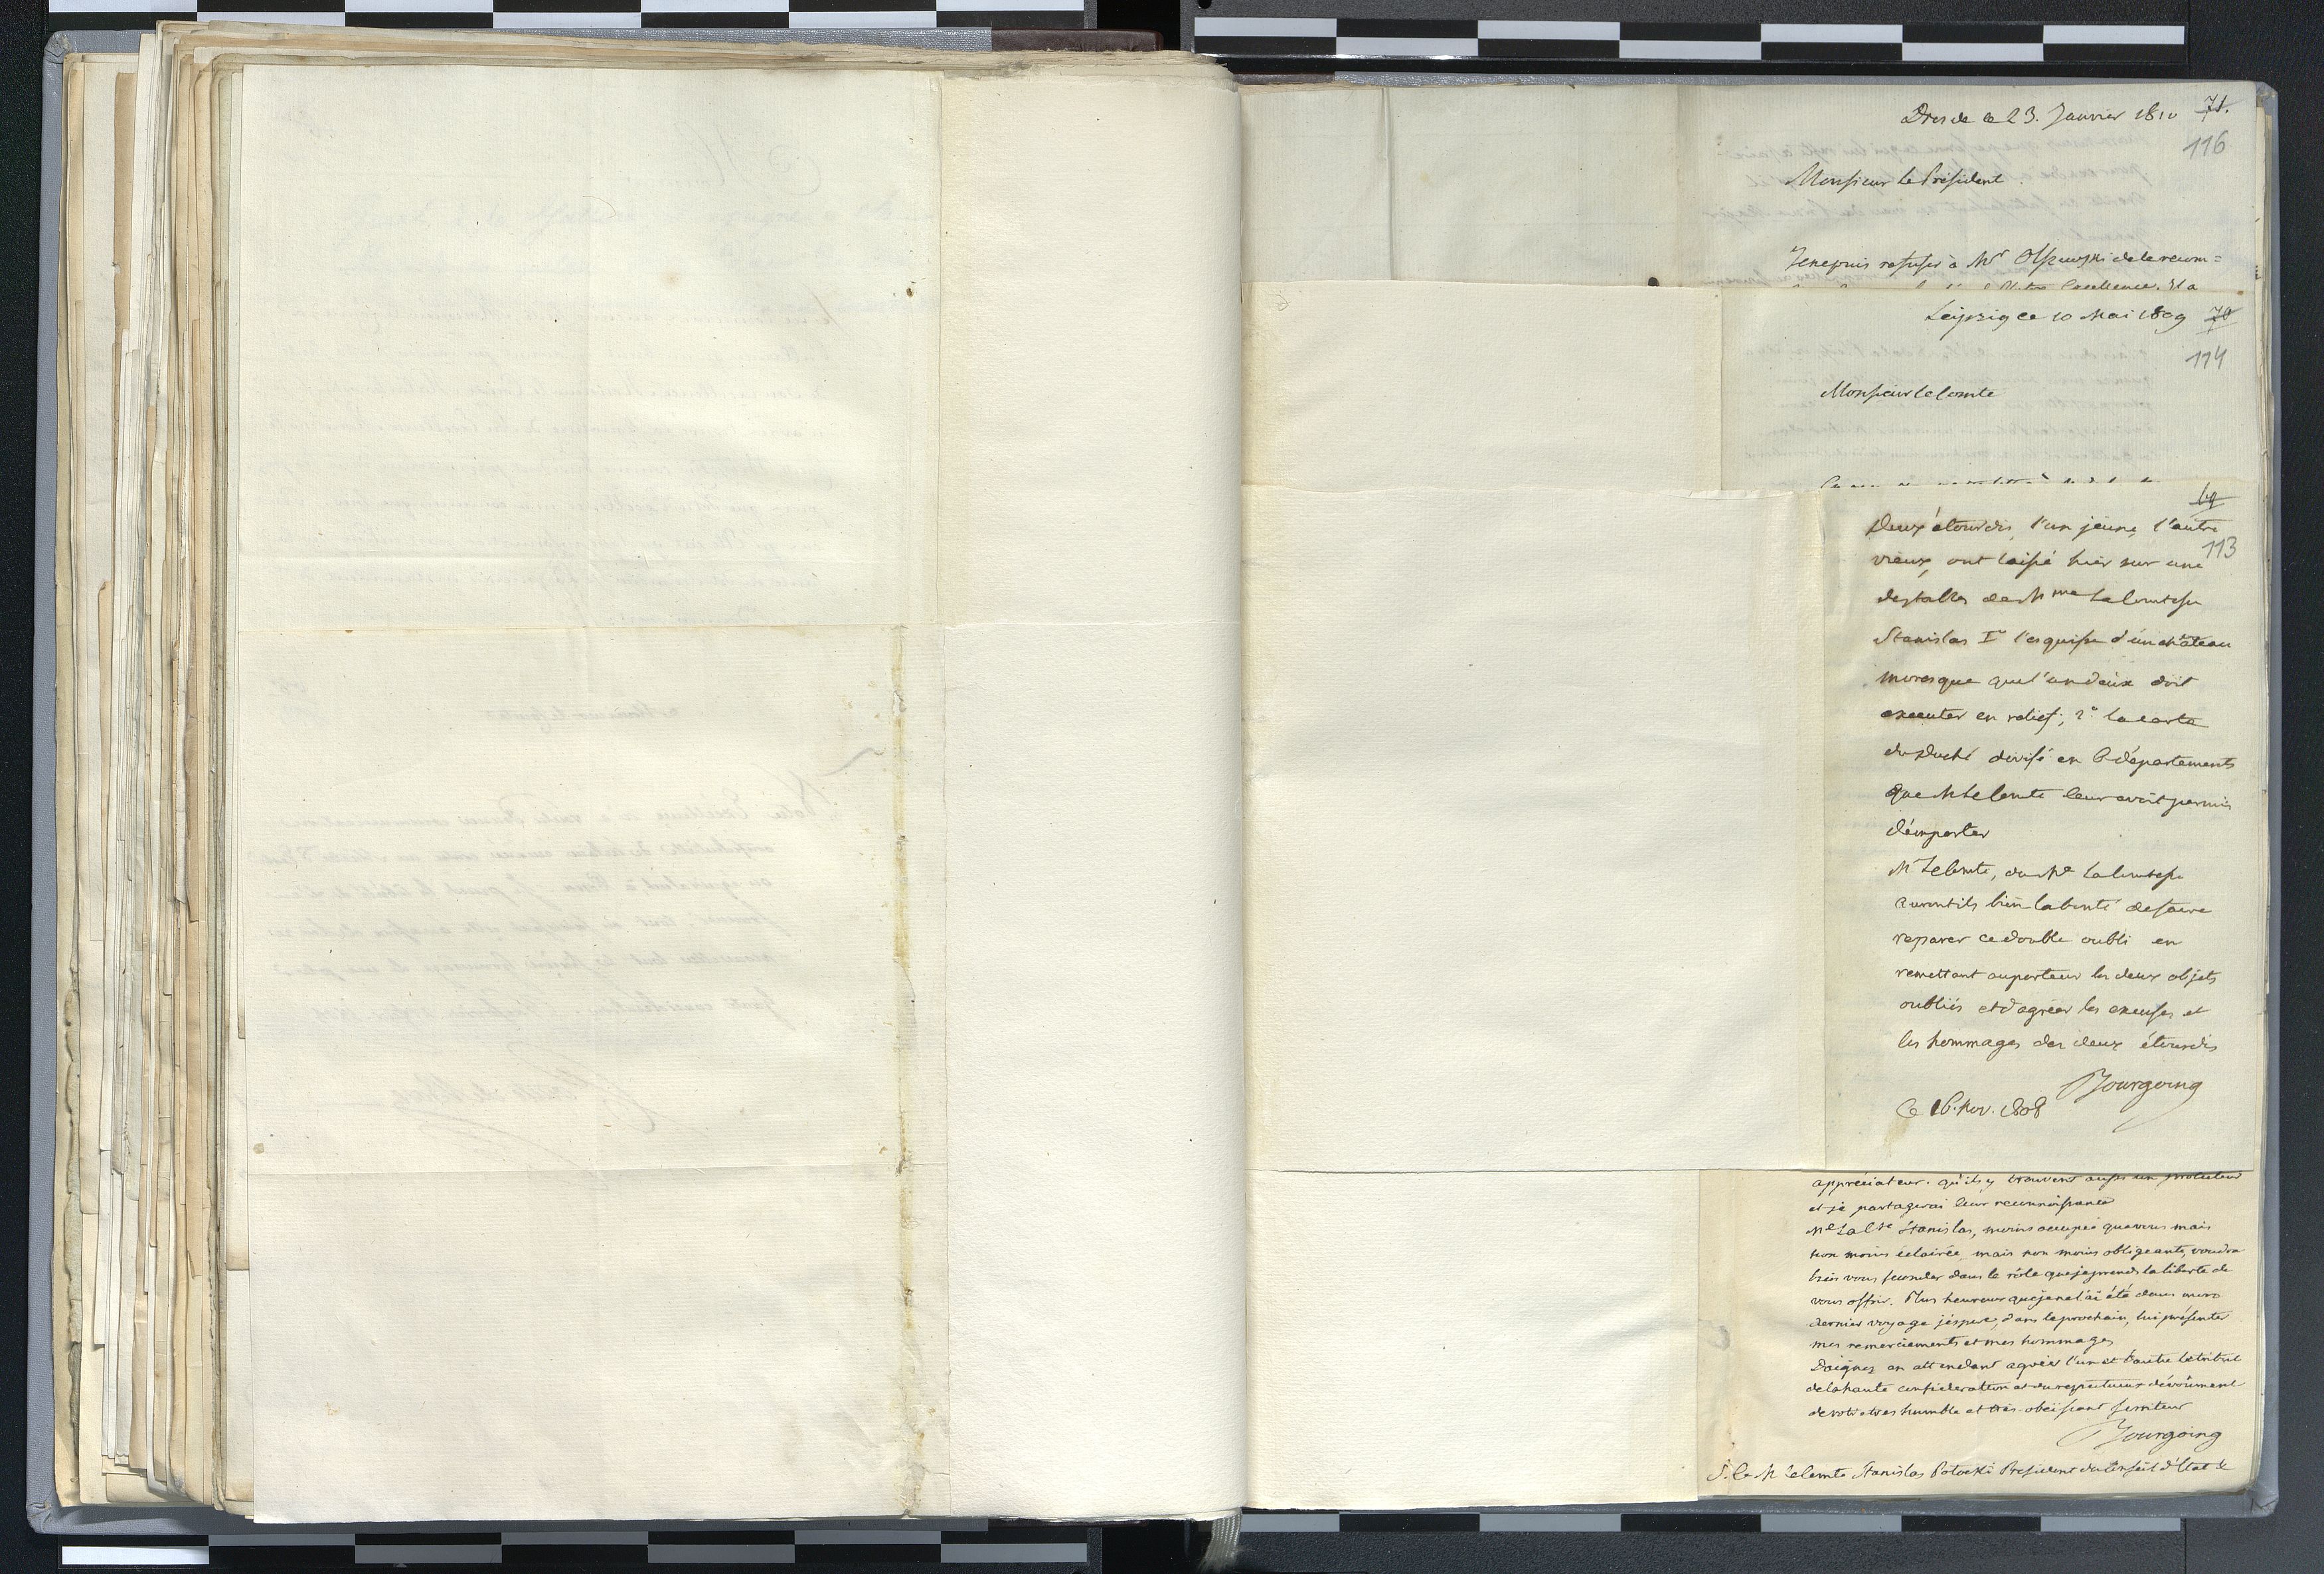 Dresde ce 23. Janvier 1810 71.
116
Monsieur le Président.
Je ne puis refuser à Mr Olszewski de le recom=
Votre Excellence. Il a
Leipzig ce 10 Mai 1809 70
114
Monsieur le Comte
69
Deux étourdis, l'un jeune, l'autre
113
vieux, ont laissé hier sur une
des tables de Mme La Comtesse
Stanislas 1º l'esquisse d'un château
moresque que l'un d'eux doit
executer en relief; 2º la carte
du Duché divisé en 6 départements
que M le Comte leur avoit permis
d'emporter
Mr Le Comte, ou Me La Comtesse
auront ils bien la bonté de faire
reparer ce double oubli en
remettant au porteur les deux objets
oubliés et d'agréer les excuses et
les hommages des deux étourdis
Bourgoing
Ce 16. Nov. 1808
appréciateur. qu'ils y trouvent aussi un protecteur
et je partagerai leur reconnoissance
Me La Ctse Stanislas, moins occupée que vous mais
non moins éclairée, mais non moins obligeante, voudra
bien vous seconder dans le rôle que je prends la liberté de
vous offrir. Plus heureux que je ne l'ai été dans mon
dernier voyage j'espere, dans le prochain, lui présenter
mes remerciements et mes hommages
Daignez en attendant agréer l'un et l'autre le tribut
de la haute consideration et du respectueux dévoûment
de votre tres humble et très-obéissant serviteur
Bourgoing
S. E. M le Comte Stanislas Potocki President du Conseil d'Etat &